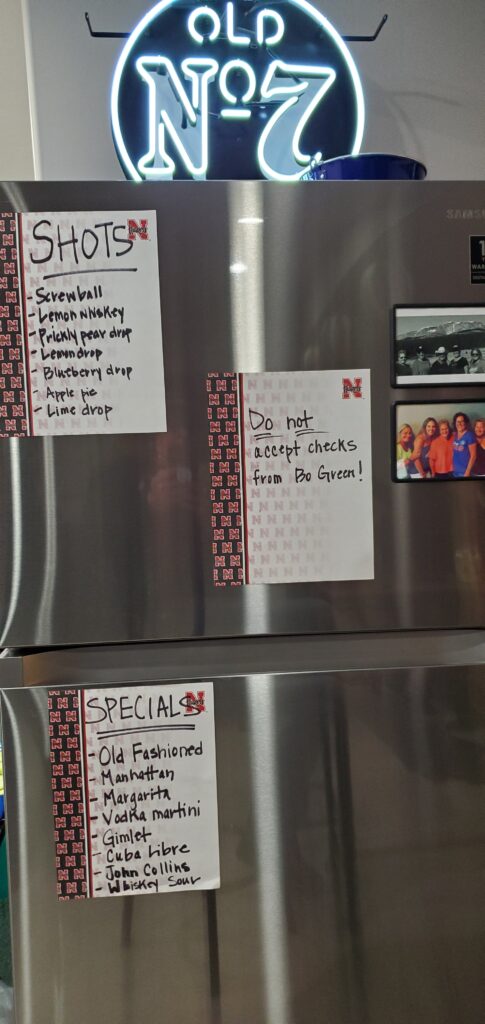 OLD
No 7
SAMSUNG
SHOTS
- Screwball
- Lemon Whiskey
- Prickly pear drop
- Lemon drop
- Blueberry drop
- Apple pie
- Lime drop
Do not
accept checks
from Bo Green!
SPECIALS
- Old Fashioned
- Manhattan
- Margarita
- Vodka martini
- Gimlet
- Cuba Libre
- John Collins
- Whiskey Sour